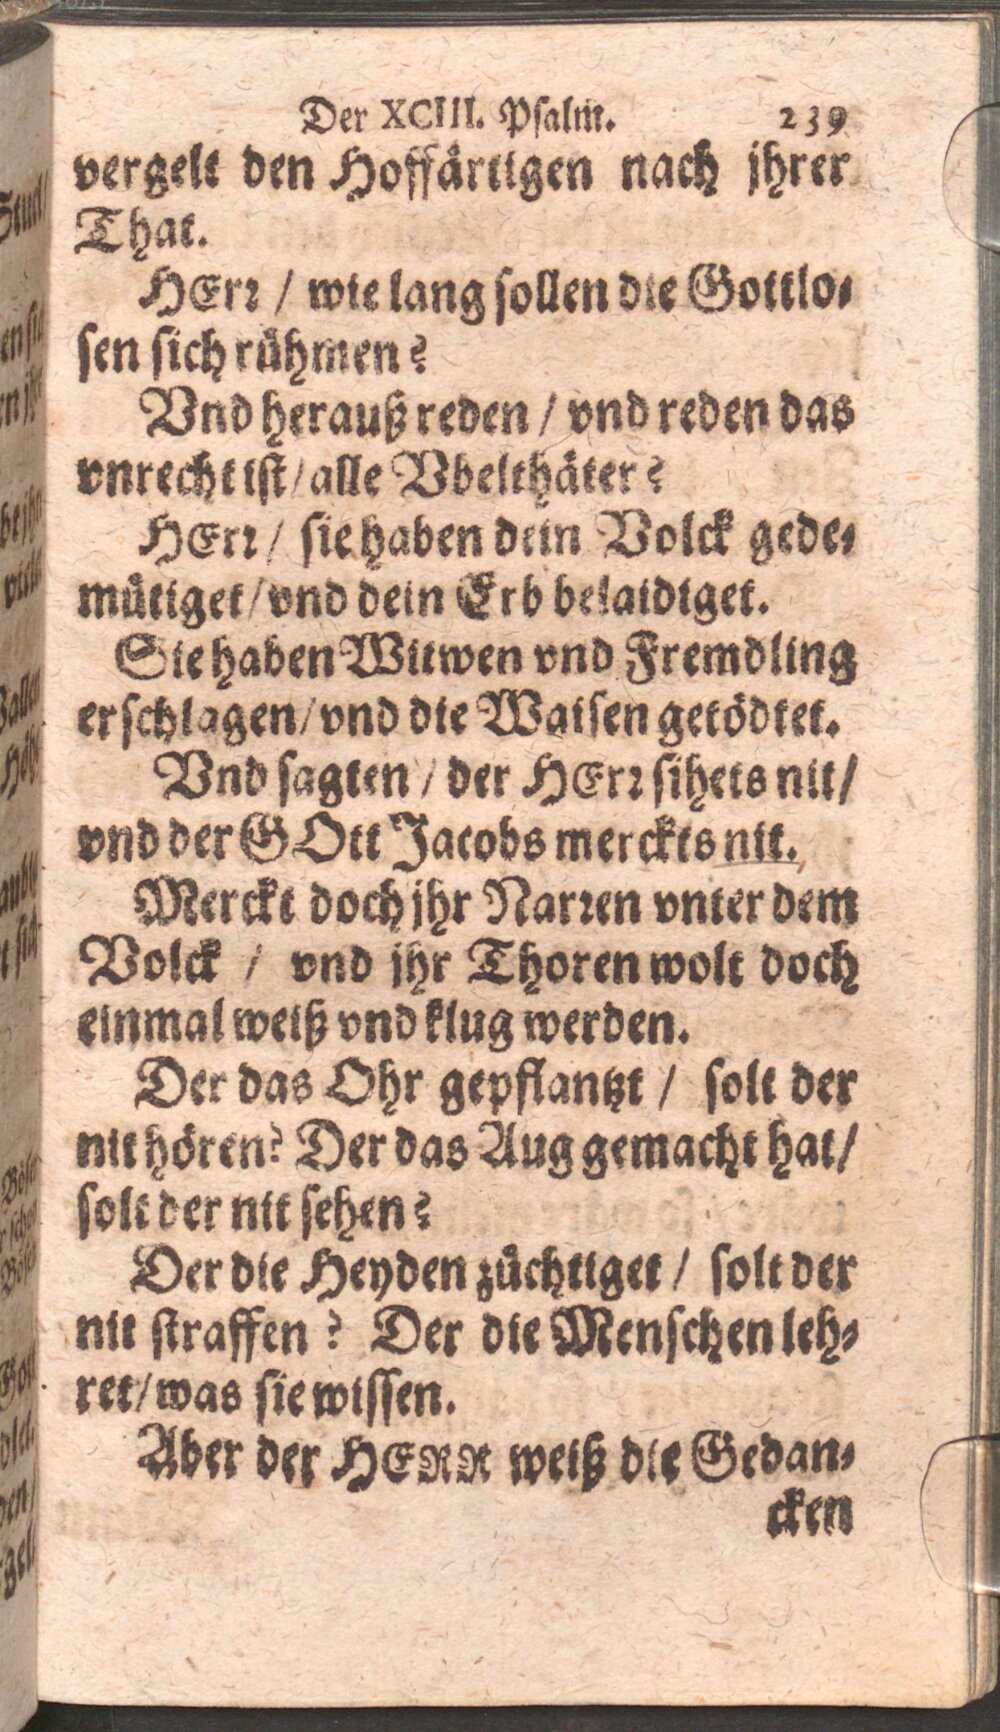 Der XCIII. Psalm. 239
vergelt den Hoffärtigen nach jhrer
That.
HErr / wie lang sollen die Gottlo-
sen sich rühmen?
Vnd herauß reden / vnd reden das
vnrecht ist / alle Vbelthäter?
HErr / sie haben dein Volck gede-
mütiget / vnd dein Erb belaidiget.
Sie haben Witwen vnd Fremdling
erschlagen / vnd die Waisen getödtet.
Vnd sagten / der HErr sihets nit /
vnd der GOtt Jacobs merckts nit.
Merckt doch jhr Narren vnter dem
Volck / vnd jhr Thoren wolt doch
einmal weiß vnd klug werden.
Der das Ohr gepflantzt / solt der
nit hören? Der das Aug gemacht hat /
solt der nit sehen?
Der die Heyden züchtiget / solt der
nit straffen? Der die Menschen leh-
ret / was sie wissen.
Aber der HERR weiß die Gedan-
cken